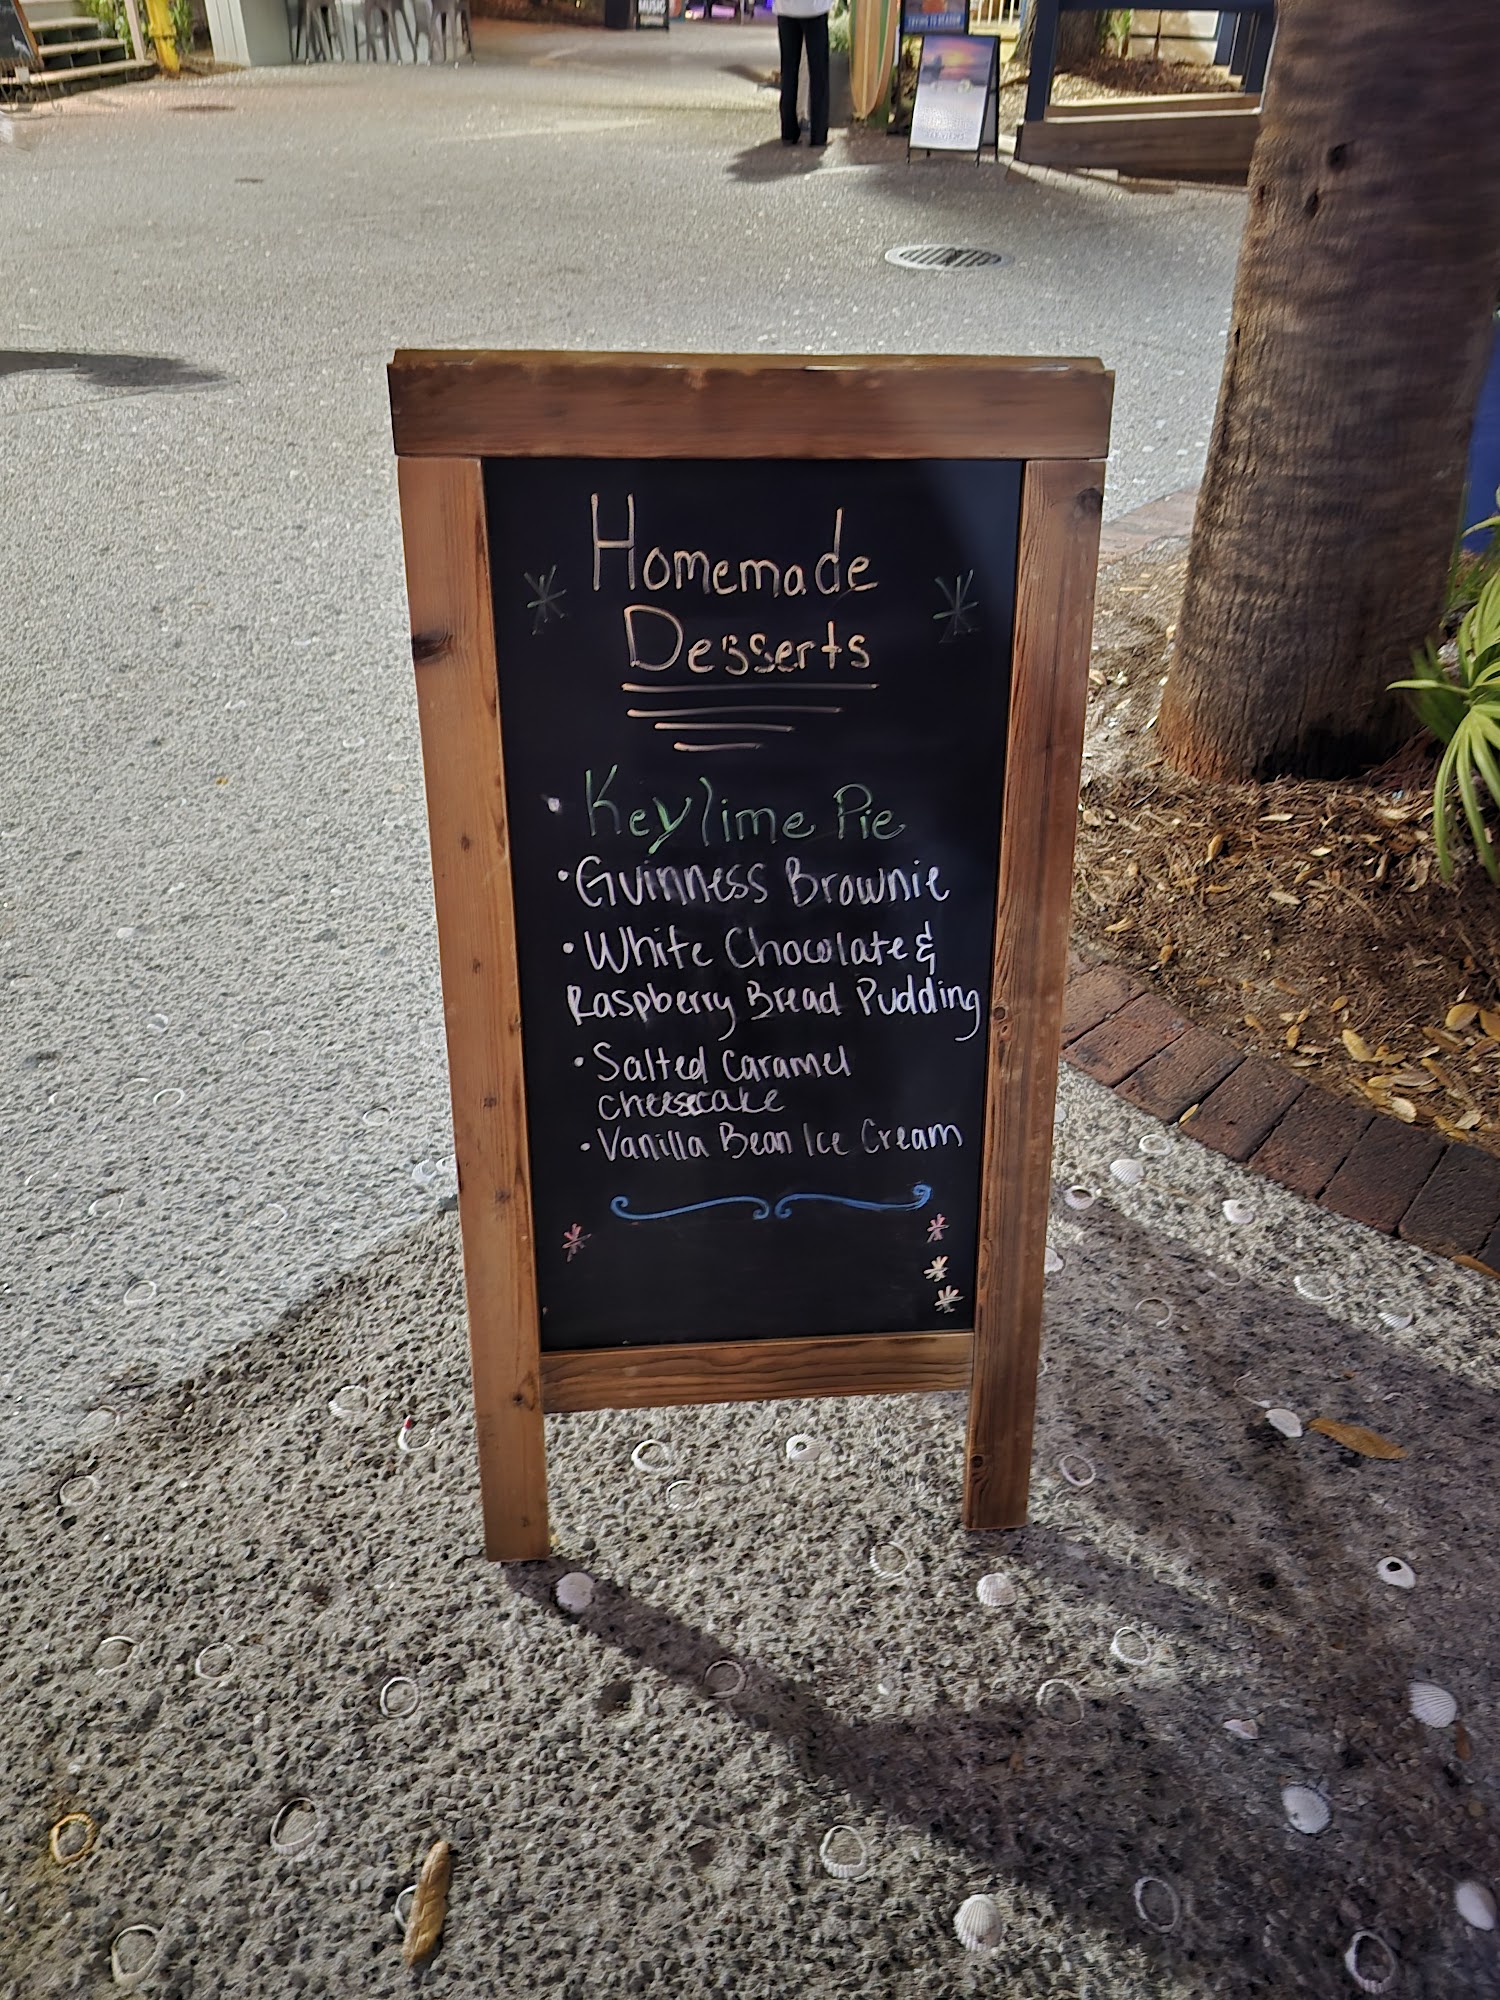 MUSIC
Homemade
Desserts
• Key lime Pie
• Guinness Brownie
• White Chocolate &
Raspberry Bread Pudding
• Salted Caramel
cheesecake
• Vanilla Bean Ice Cream